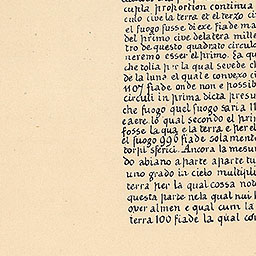 cupla proportion continua
culo cive la terra et el terzo ci
el fuogo fusse di exe fiade ma
del primo cive de la tera mille
tro de questo quadrato circulo
neremo esser el primo. la qu
che tolia per la qual se vede ch
de la luna el qual e convexo ci
1107 fiade onde non e possibi
circuli in prima dicta presu
che fuogo quel fuogo saria 11
e aere lo qual secondo el prim
fosse la qua e la terra e per el
el fuogo 996 fiade solamente
corpi sferici. Ancora la mesur
do abiano a parte a parte tu
uno grado in cielo multiplic
terra per la qual cossa note
questa parte ne la qual nui h
over almen e qual cum la
terra 100 fiade la qual co